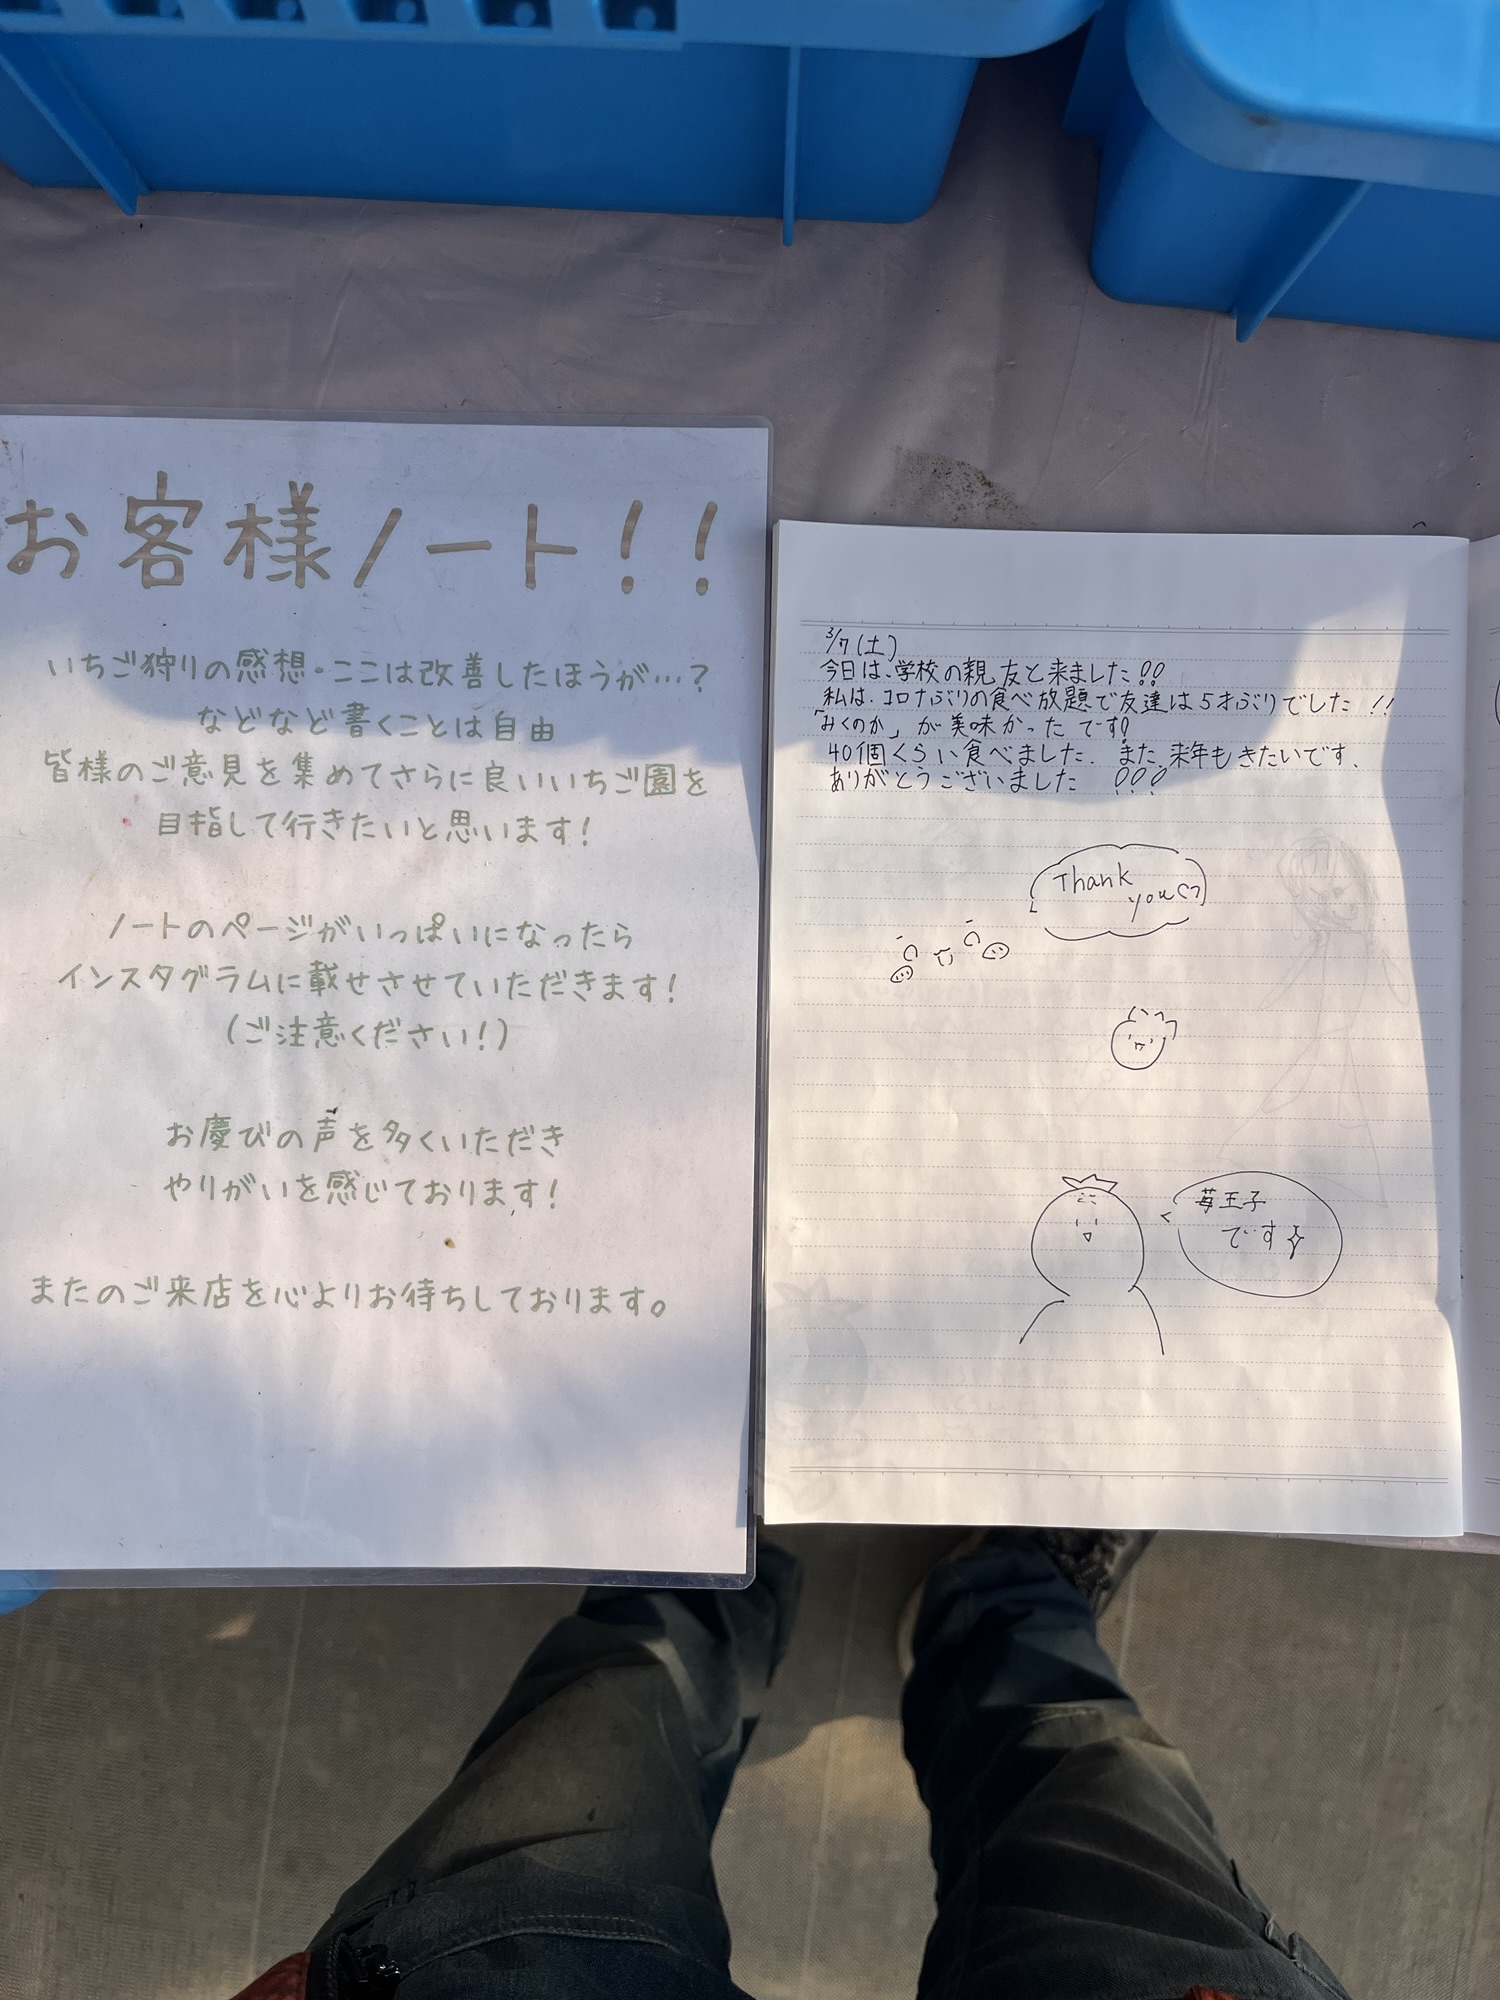 お客様ノート!!
いちご狩りの感想・ここは改善したほうが…?
などなど書くことは自由
皆様のご意見を集めてさらに良いいちご園を
目指して行きたいと思います!
ノートのページがいっぱいになったら
インスタグラムに載せさせていただきます!
(ご注意ください!)
お慶びの声を多くいただき
やりがいを感じております!
またのご来店を心よりお待ちしております。
3/7(土)
今日は、学校の親友と来ました!!
私は、コロナぶりの食べ放題で友達は5才ぶりでした!!
「みくのか」が美味かったです!
40個くらい食べました。また、来年もきたいです。
ありがとうございました!!!
Thank
you
苺王子
です